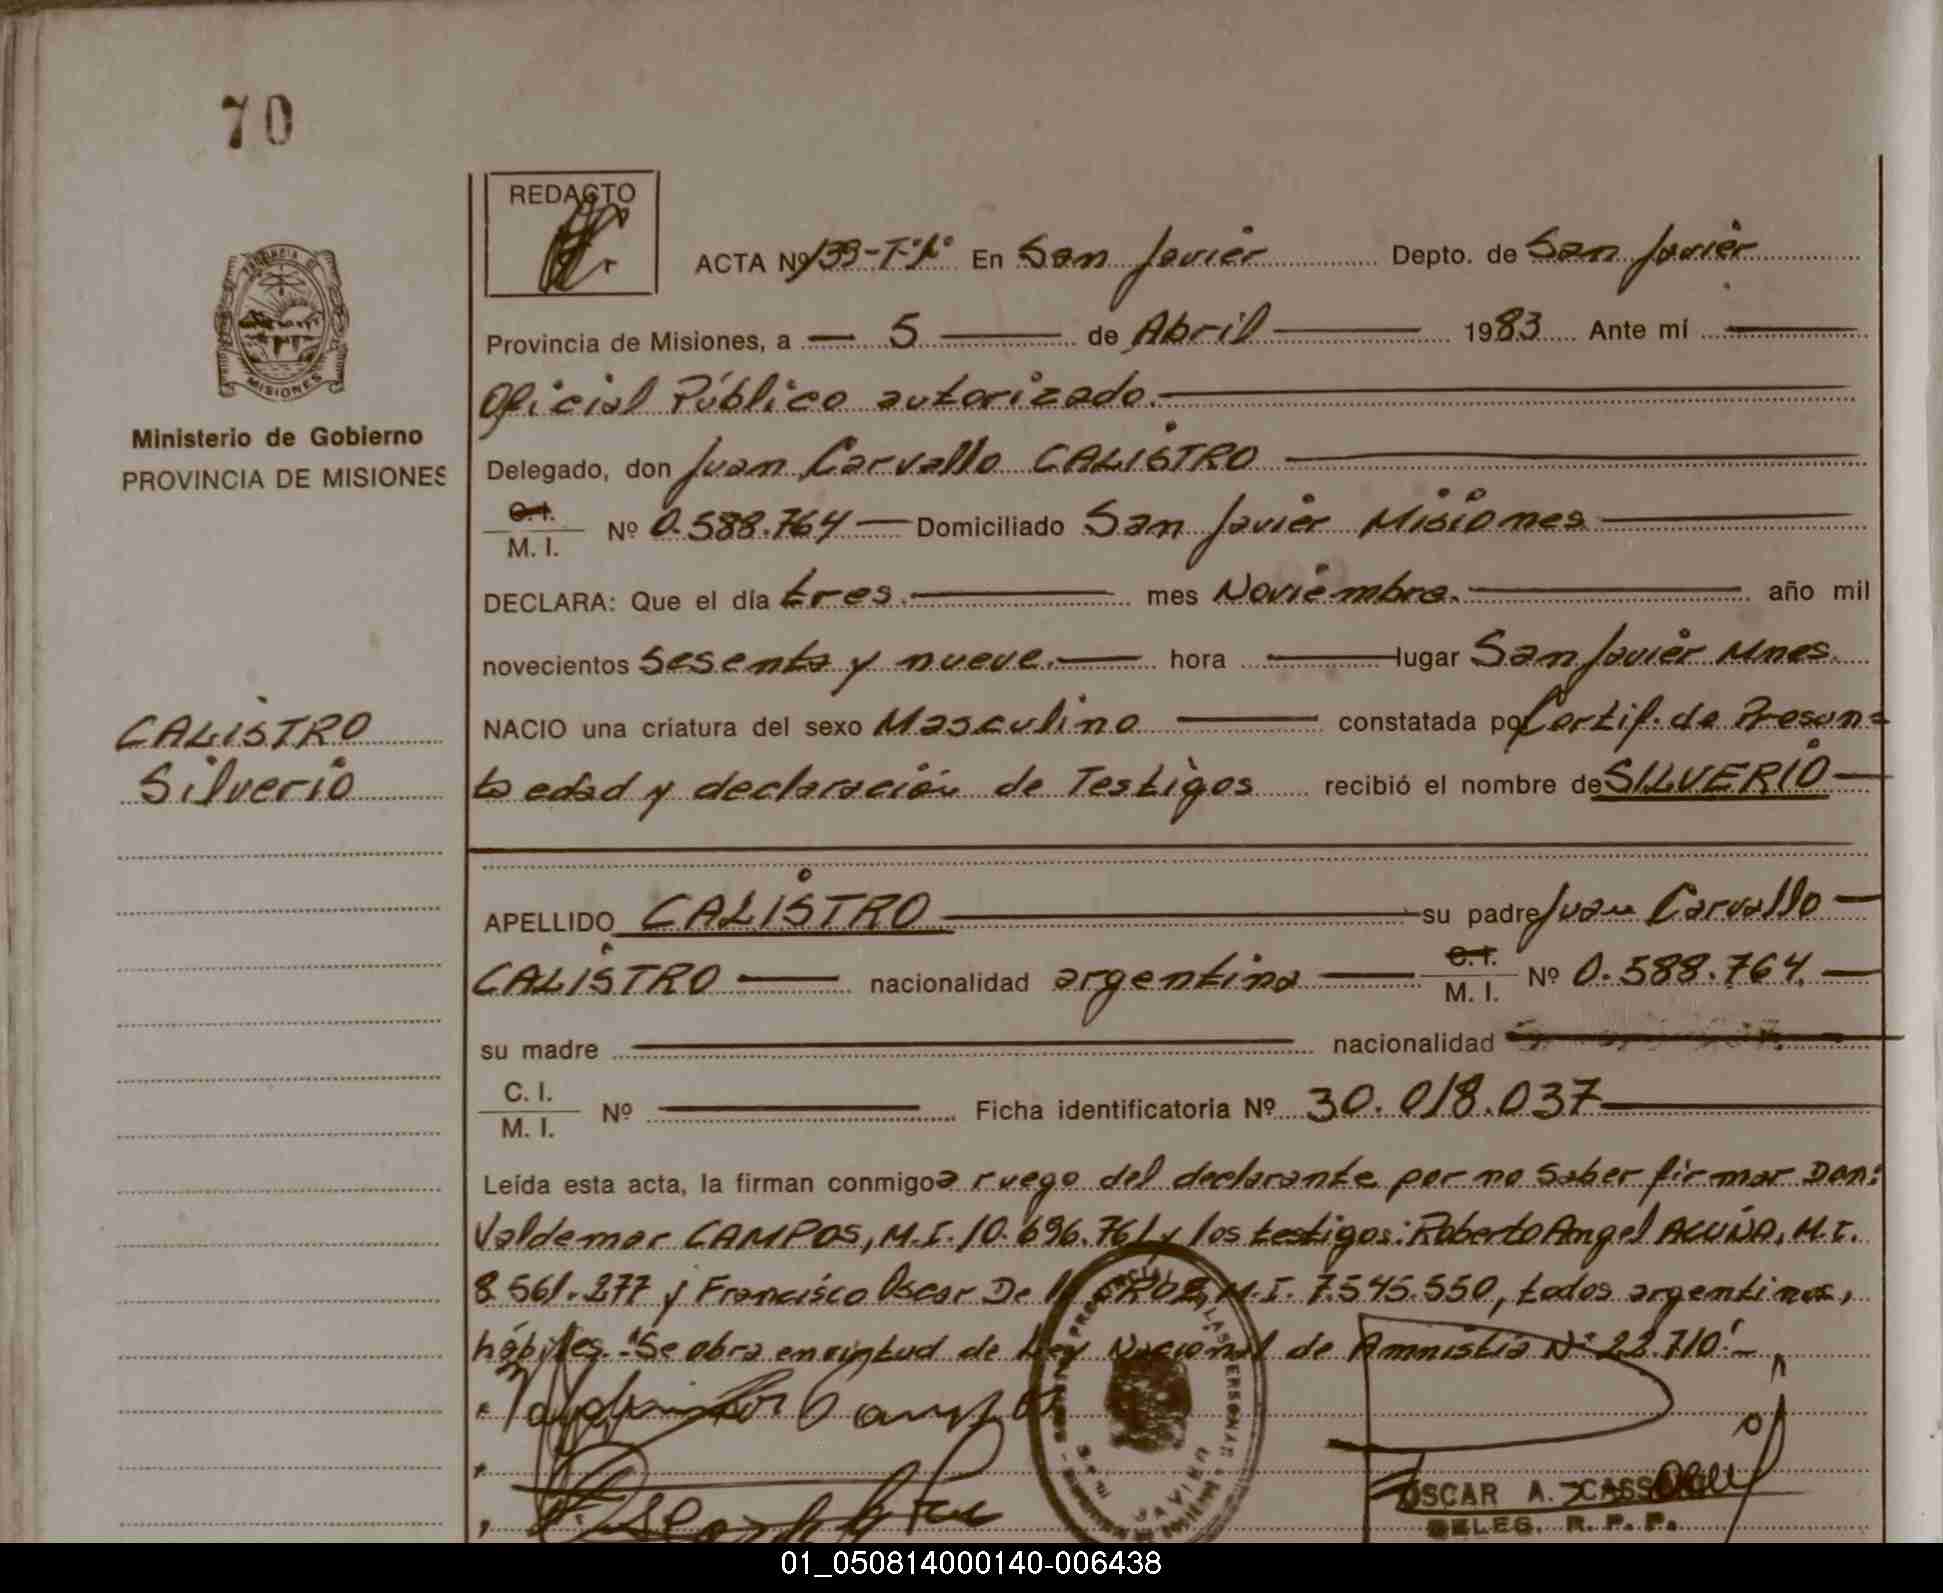 70
REDACTO
ACTA Nº 133-Tº1º En San Javier Depto. de San Javier
Provincia de Misiones, a — 5 — de Abril — 1983 Ante mí —
Oficial Público autorizado. —
Ministerio de Gobierno
PROVINCIA DE MISIONES
Delegado, don Juan Carvallo CALISTRO —
C. I.
M. I. Nº 0.588.764 — Domiciliado San Javier Misiones —
DECLARA: Que el día tres. — mes Noviembre. — año mil
novecientos sesenta y nueve. — hora — lugar San Javier Mnes.
CALISTRO
Silverio
NACIO una criatura del sexo Masculino — constatada por Certif. de Presun=
ta edad y declaración de Testigos recibió el nombre de SILVERIO —
APELLIDO CALISTRO — su padre Juan Carvallo —
CALISTRO — nacionalidad argentina — C. I.
M. I. Nº 0.588.764. —
su madre — nacionalidad
C. I.
M. I. Nº — Ficha identificatoria Nº 30.018.037 —
Leída esta acta, la firman conmigo a ruego del declarante por no saber firmar Don:
Valdemar CAMPOS, M.I. 10.696.761 y los testigos: Roberto Angel ACUÑA, M.I.
8.561.277 y Francisco Oscar De la CROZ, M.I. 7.545.550, todos argentinos,
hábiles. "Se obra en virtud de Ley Nacional de Amnistia Nº 22.710".-
PROVINCIA DE
MISIONES
JAVIER
OSCAR A.
DELEG. R. P. P.
01_050814000140-006438